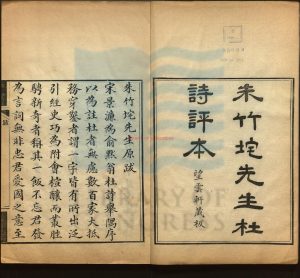 朱竹垞先生杜
詩評本
望雲軒藏板
朱竹垞先生原跋
宋景濂為俞黙翁杜詩舉隅序
以為註杜者無慮數百家大抵
務穿鑿者謂一字皆有所出泛
引經史巧為附會楦釀而叢脞
騁新奇者稱其一飯不忘君發
為言詞無非忠君愛國之意至